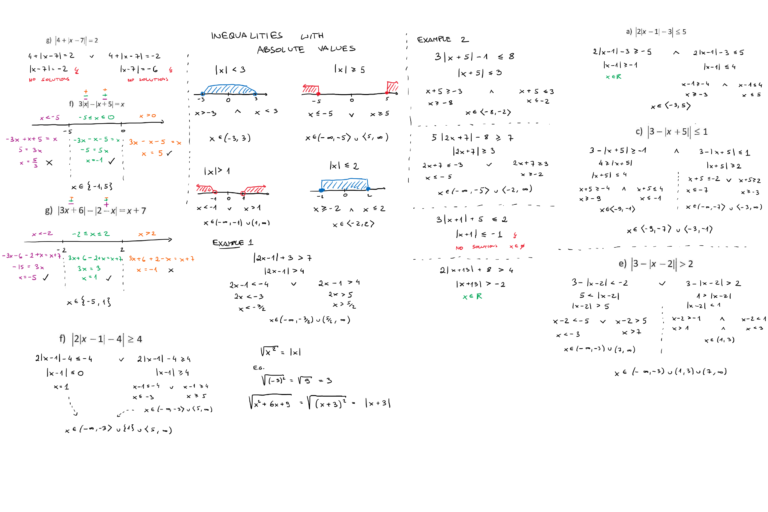 g) |4 + |x − 7|| = 2
4+|x-7| = 2 v 4+|x-7| = -2
|x-7| = -2 |x-7| = -6
NO SOLUTIONS NO SOLUTIONS
f) 3|x| − |x + 5| = x
x<-5 -5≤x≤0 x>0
-5 0
-3x+x+5 = x -3x-x-5 = x 3x-x-5 = x
5 = 3x -5 = 5x x = 5 ✓
x = 5/3 × x = -1 ✓
x ∈ {-1, 5}
g) |3x + 6| − |2 − x| = x + 7
x<-2 -2≤x≤2 x>2
-2 2
-3x-6-2+x = x+7 3x+6-2+x = x+7 3x+6+2-x = x+7
-15 = 3x 3x = 3 x = -1 ×
x = -5 ✓ x = 1 ✓
x ∈ {-5, 1}
f) |2|x − 1| − 4| ≥ 4
2|x-1|-4 ≤ -4 v 2|x-1|-4 ≥ 4
|x-1| ≤ 0 |x-1| ≥ 4
x = 1 x-1 ≤ -4 v x-1 ≥ 4
x ≤ -3 x ≥ 5
x ∈ (-∞, -3⟩ ∪ ⟨5, ∞)
x ∈ (-∞, -3⟩ ∪ {1} ∪ ⟨5, ∞)
INEQUALITIES WITH
ABSOLUTE VALUES
|x| < 3 |x| ≥ 5
-3 0 3 -5 0 5
x > -3 ∧ x < 3 x ≤ -5 v x ≥ 5
x ∈ (-3, 3) x ∈ (-∞, -5⟩ ∪ ⟨5, ∞)
|x| > 1 |x| ≤ 2
-1 0 1 -2 0 2
x < -1 v x > 1 x ≥ -2 ∧ x ≤ 2
x ∈ (-∞, -1) ∪ (1, ∞) x ∈ ⟨-2, 2⟩
EXAMPLE 1
|2x-1| + 3 > 7
|2x-1| > 4
2x-1 < -4 v 2x-1 > 4
2x < -3 2x > 5
x < -3/2 x > 5/2
x ∈ (-∞, -3/2) ∪ (5/2, ∞)
√x² = |x|
E.G.
√(-3)² = √9 = 3
√x²+6x+9 = √(x+3)² = |x+3|
EXAMPLE 2
3|x+5| - 1 ≤ 8
|x+5| ≤ 3
x+5 ≥ -3 ∧ x+5 ≤ 3
x ≥ -8 x ≤ -2
x ∈ ⟨-8, -2⟩
5|2x+7| - 8 ≥ 7
|2x+7| ≥ 3
2x+7 ≤ -3 v 2x+7 ≥ 3
x ≤ -5 x ≥ -2
x ∈ (-∞, -5⟩ ∪ ⟨-2, ∞)
3|x+1| + 5 ≤ 2
|x+1| ≤ -1
NO SOLUTION x ∈ ∅
2|x+13| + 8 > 4
|x+13| > -2
x ∈ R
a) |2|x − 1| − 3| ≤ 5
2|x-1|-3 ≥ -5 ∧ 2|x-1|-3 ≤ 5
|x-1| ≥ -1 |x-1| ≤ 4
x ∈ R x-1 ≥ -4 ∧ x-1 ≤ 4
x ≥ -3 x ≤ 5
x ∈ ⟨-3, 5⟩
c) |3 − |x + 5|| ≤ 1
3-|x+5| ≥ -1 ∧ 3-|x+5| ≤ 1
4 ≥ |x+5| |x+5| ≥ 2
|x+5| ≤ 4 x+5 ≤ -2 v x+5 ≥ 2
x+5 ≥ -4 ∧ x+5 ≤ 4 x ≤ -7 x ≥ -3
x ≥ -9 x ≤ -1
x ∈ ⟨-9, -1⟩ x ∈ (-∞, -7⟩ ∪ ⟨-3, ∞)
x ∈ ⟨-9, -7⟩ ∪ ⟨-3, -1⟩
e) |3 − |x − 2|| > 2
3-|x-2| < -2 v 3-|x-2| > 2
5 < |x-2| 1 > |x-2|
|x-2| > 5 |x-2| < 1
x-2 < -5 v x-2 > 5 x-2 > -1 ∧ x-2 < 1
x < -3 x > 7 x > 1 x < 3
x ∈ (-∞, -3) ∪ (7, ∞) x ∈ (1, 3)
x ∈ (-∞, -3) ∪ (1, 3) ∪ (7, ∞)